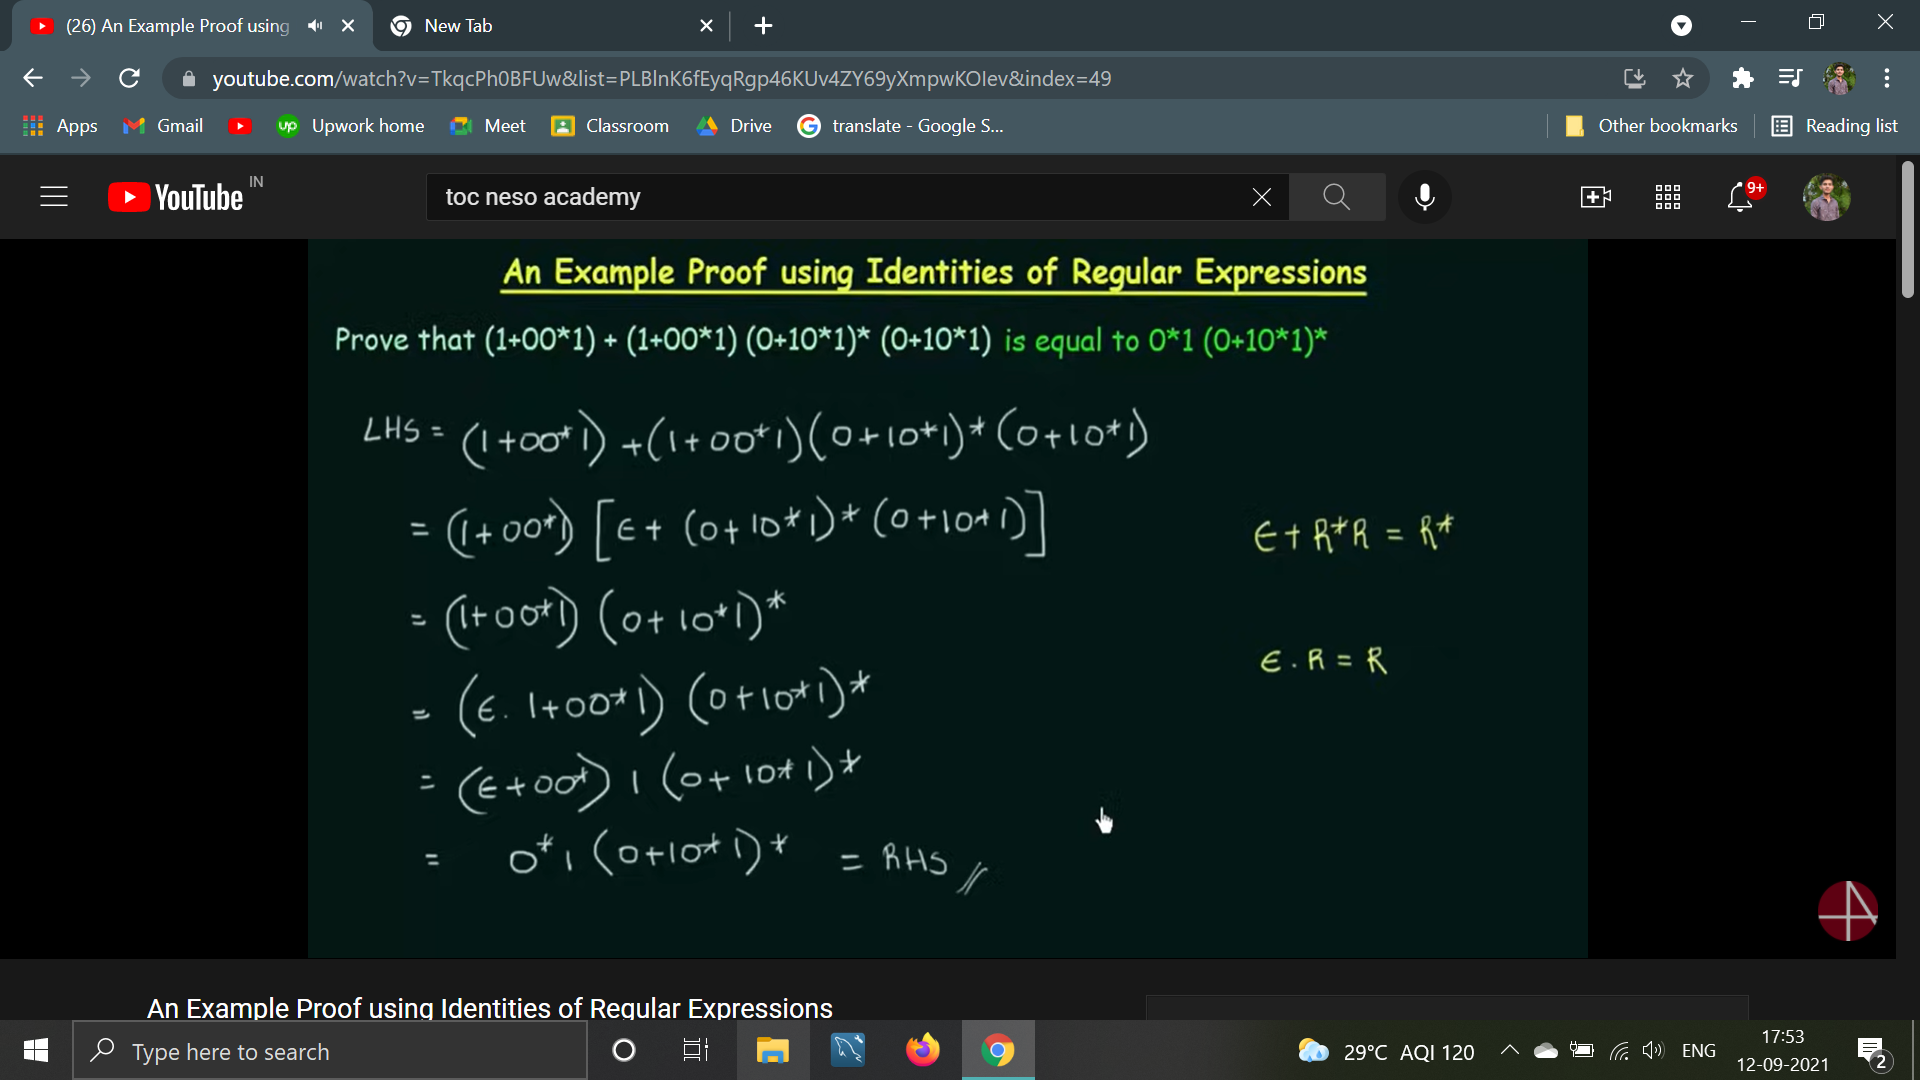 (26) An Example Proof using
New Tab
youtube.com/watch?v=TkqcPh0BFUw&list=PLBlnK6fEyqRgp46KUv4ZY69yXmpwKOIev&index=49
Apps Gmail up Upwork home Meet Classroom Drive G translate - Google S... Other bookmarks Reading list
YouTube IN
toc neso academy
9+
An Example Proof using Identities of Regular Expressions
Prove that (1+00*1) + (1+00*1) (0+10*1)* (0+10*1) is equal to 0*1 (0+10*1)*
LHS = (1+00*1) + (1+00*1)(0+10*1)* (0+10*1)
= (1+00*1) [ϵ+ (0+10*1)* (0+10*1)]
ϵ+ R*R = R*
= (1+00*1) (0+10*1)*
ϵ . R = R
= (ϵ. 1+00*1) (0+10*1)*
= (ϵ+00*) 1 (0+10*1)*
= 0*1 (0+10*1)* = RHS //
An Example Proof using Identities of Regular Expressions
Type here to search
29°C AQI 120
ENG
17:53
12-09-2021
2